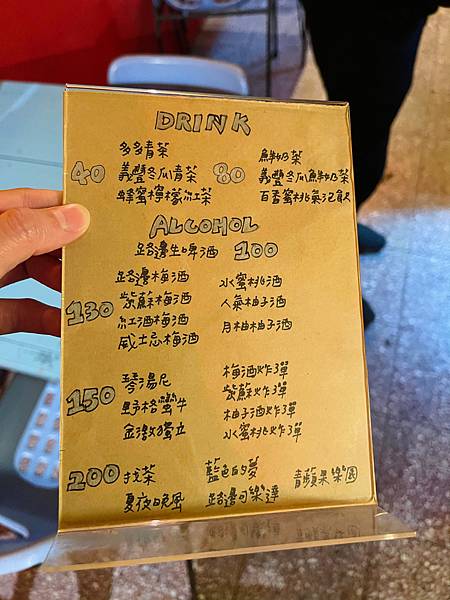 DRINK
40 多多青茶
義豐冬瓜青茶
蜂蜜檸檬紅茶
80 鮮奶茶
義豐冬瓜鮮奶茶
百香蜜桃氣泡飲
ALCOHOL
路邊生啤酒 100
130 路邊梅酒
紫蘇梅酒
紅酒梅酒
威士忌梅酒
水蜜桃酒
人氣柚子酒
月柚柚子酒
150 琴湯尼
野格蠻牛
金激獨立
梅酒炸彈
紫蘇炸彈
柚子酒炸彈
水蜜桃炸彈
200 找茶 藍色的夢 青蘋果樂園
夏夜晚風 路邊可樂達